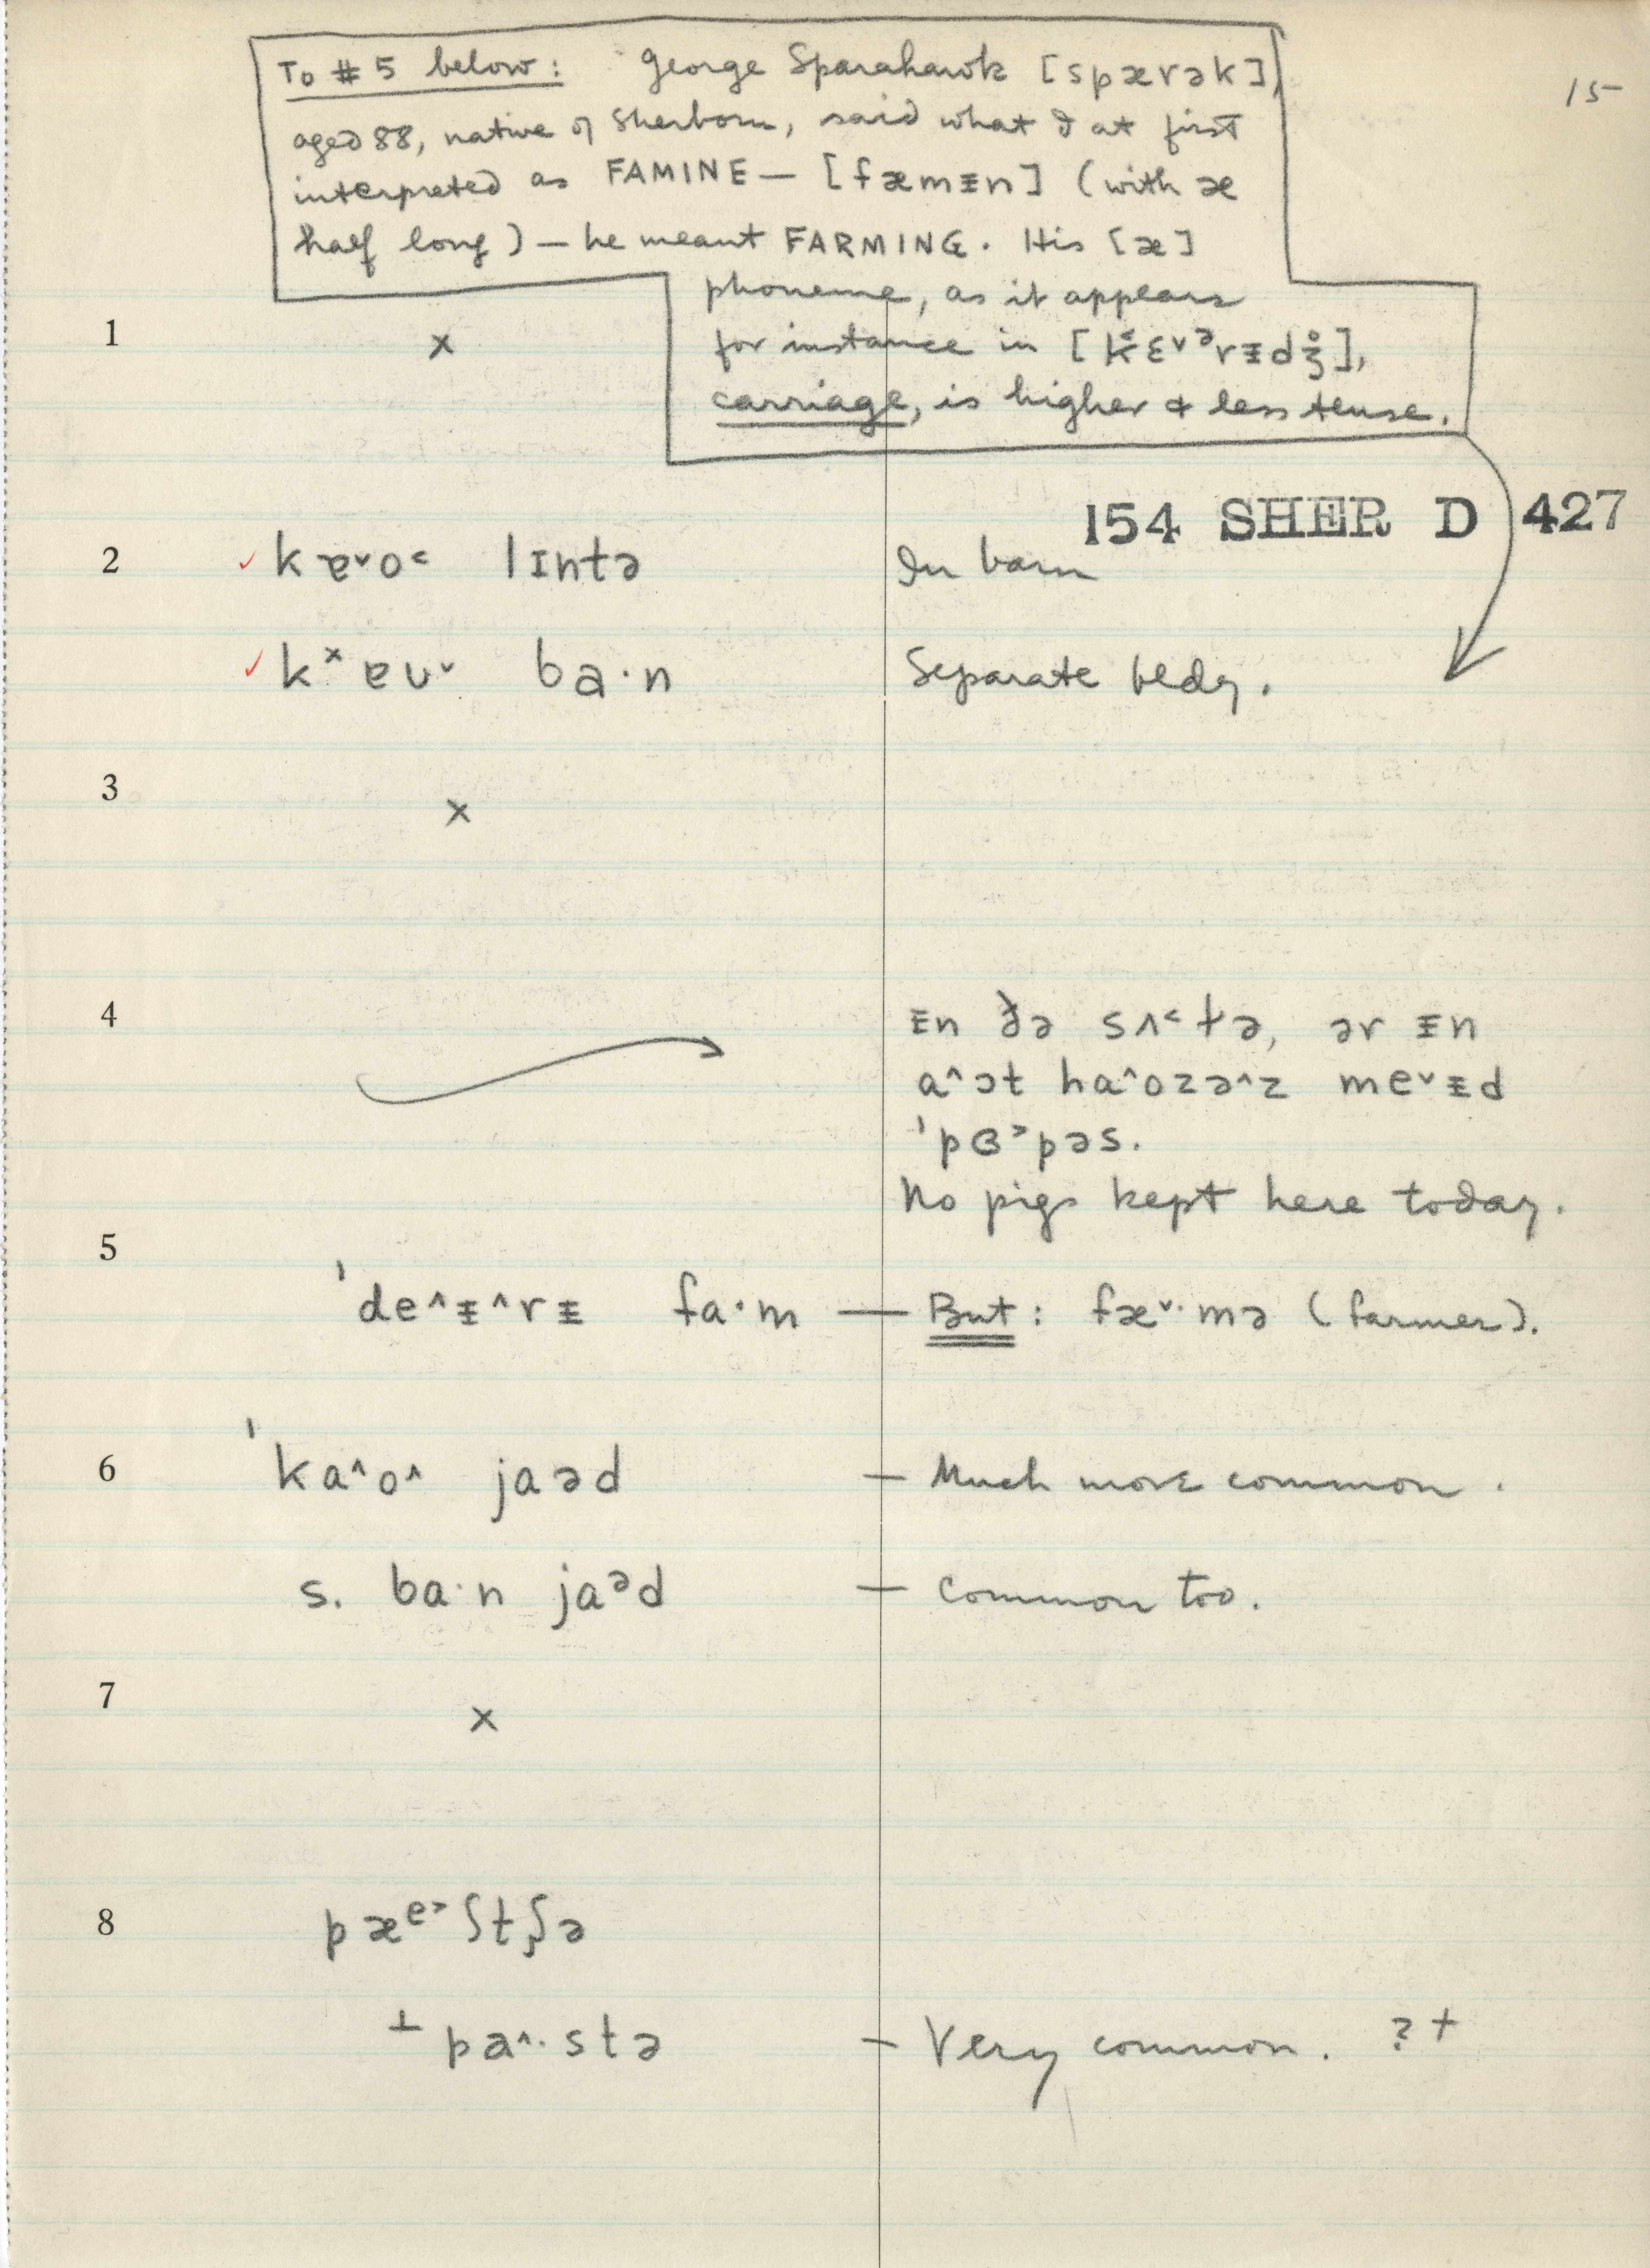 15
To #5 below: George Sparahawk [spærək],
aged 88, native of Sherborn, said what I at first
interpreted as FAMINE — [fæmᵻn] (with æ
half long) — he meant FARMING. His [æ]
phoneme, as it appears
for instance in [k̔ɛ˅ᵊrᵻdʒ̊],
carriage, is higher & less tense.
1 x
154 SHER D 427
2 ✓ kɐ˅o˂ lɪntə In barn
✓ kˣɐʊ˅ ba·n Separate bldg.
3 x
4 ᵻn ðə sʌ˂t̬ə, ər ᵻn
a˄ɔt ha˄ozə˄z me˅ᵻd
ˈpɞ˃pəs.
No pigs kept here today.
5 ˈde˄ᵻ˄rᵻ fa·m — But: fæ˅·mə (farmer).
6 ˈka˄o˄ jaəd — Much more common.
s. ba·n jaᵊd — Common too.
7 x
8 pæᵉ˃ʃtʃə
⊥ pa˄·stə — Very common. ? +